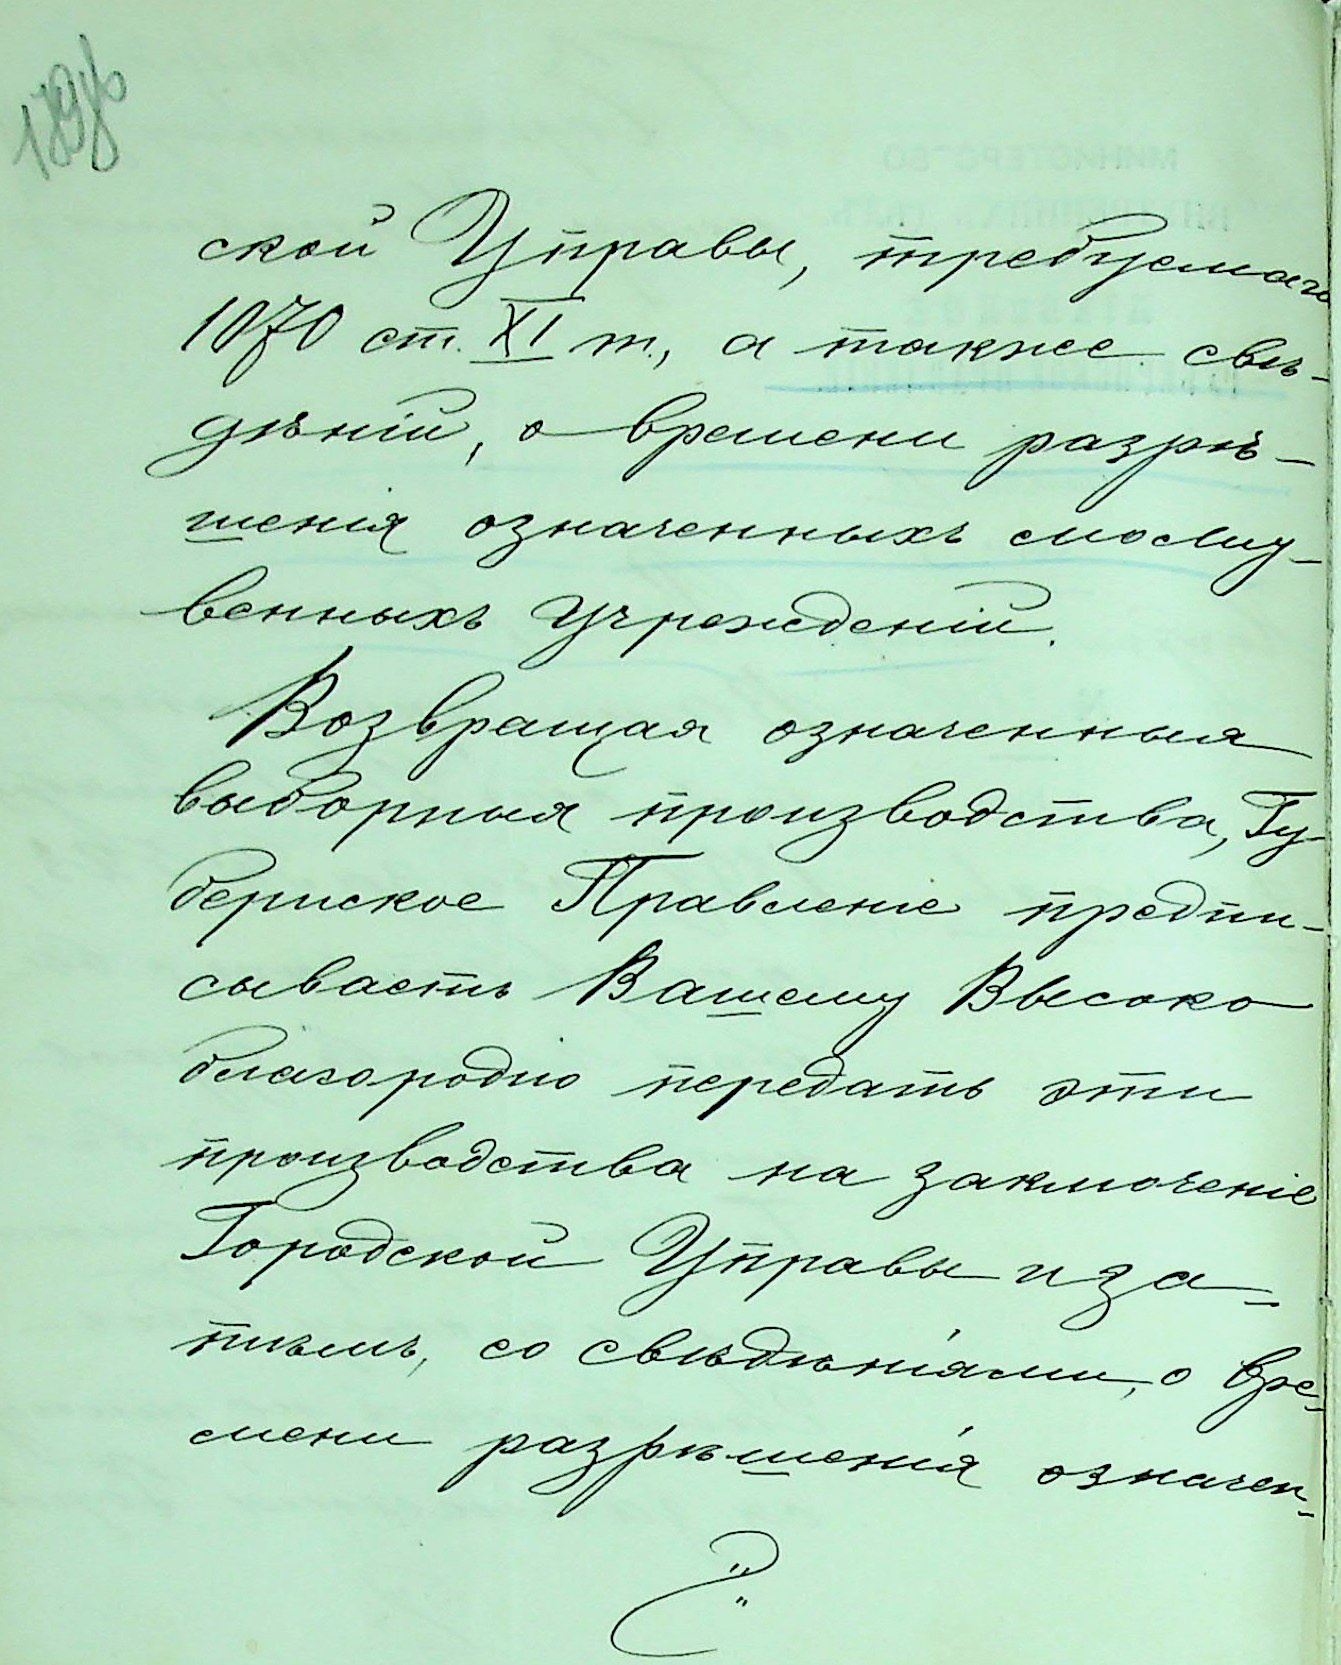 189об
ской Управы, требуемаго
1070 ст. XI т., а также свѣ-
дѣній, о времени разрѣ-
шенія означенныхъ молит-
венныхъ учрежденій.
Возвращая означенныя
выборныя производства, Гу-
бернское Правленіе предпи-
сываетъ Вашему Высоко
благородію передать эти
производства на заключеніе
Городской Управы и за-
тѣмъ, со свѣдѣніями, о вре-
мени разрѣшенія означен-